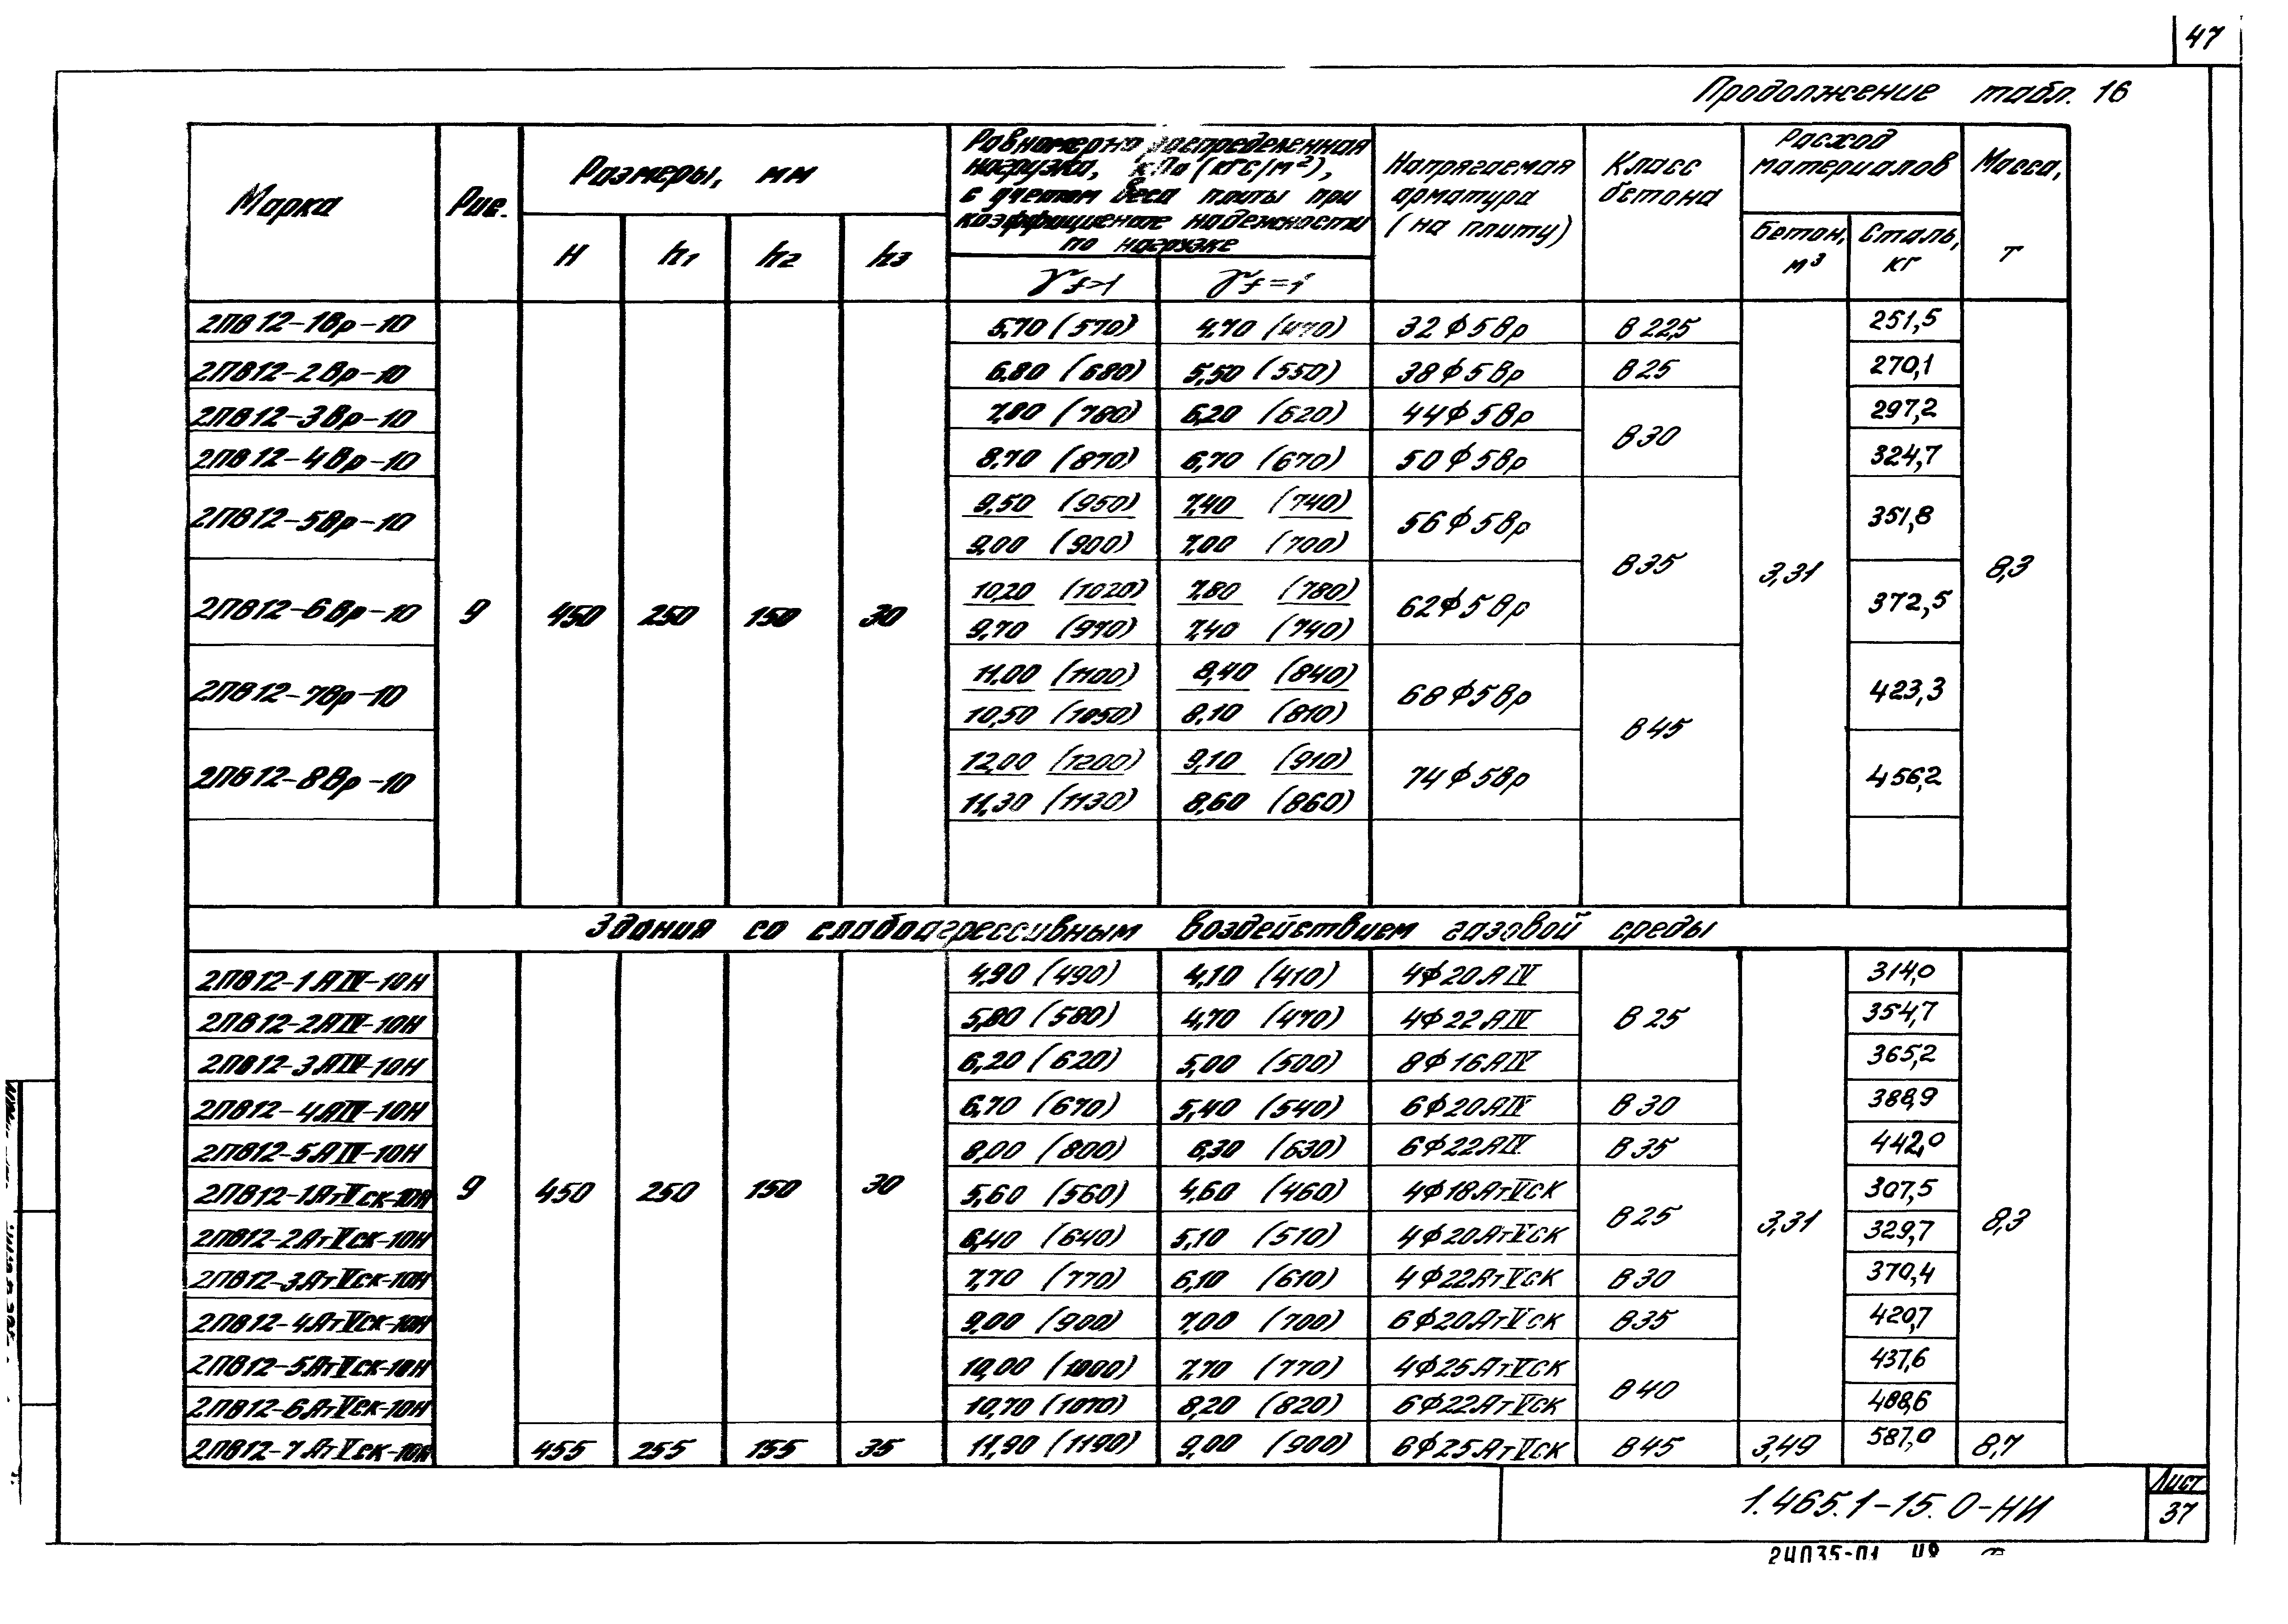 47
Продолжение табл. 16
Марка
Рис.
Размеры, мм
Равномерно распределенная нагрузка, кПа (кгс/м²), с учетом веса плиты при коэффициенте надежности по нагрузке
Напрягаемая арматура (на плиту)
Класс бетона
Расход материалов
Масса, т
H h1 h2 h3
γf>1 γf=1
Бетон, м³ Сталь, кг
2ПВ12-1Вр-10 5,70 (570) 4,70 (470) 32ф5Вр В22,5 251,5
2ПВ12-2Вр-10 6,80 (680) 5,50 (550) 38ф5Вр В25 270,1
2ПВ12-3Вр-10 7,80 (780) 6,20 (620) 44ф5Вр В30 297,2
2ПВ12-4Вр-10 8,70 (870) 6,70 (670) 50ф5Вр 324,7
2ПВ12-5Вр-10 9,50 (950) 7,40 (740) 56ф5Вр В35 351,8
9,00 (900) 7,00 (700)
2ПВ12-6Вр-10 9 450 250 150 30 10,20 (1020) 7,80 (780) 62ф5Вр 3,31 372,5 8,3
9,70 (970) 7,40 (740)
2ПВ12-7Вр-10 11,00 (1100) 8,40 (840) 68ф5Вр В45 423,3
10,50 (1050) 8,10 (810)
2ПВ12-8Вр-10 12,00 (1200) 9,10 (910) 74ф5Вр 456,2
11,30 (1130) 8,60 (860)
Здания со слабоагрессивным воздействием газовой среды
2ПВ12-1АIV-10Н 4,90 (490) 4,10 (410) 4ф20АIV 314,0
2ПВ12-2АIV-10Н 5,80 (580) 4,70 (470) 4ф22АIV В25 354,7
2ПВ12-3АIV-10Н 6,20 (620) 5,00 (500) 8ф16АIV 365,2
2ПВ12-4АIV-10Н 6,70 (670) 5,40 (540) 6ф20АIV В30 388,9
2ПВ12-5АIV-10Н 8,00 (800) 6,30 (630) 6ф22АIV В35 442,0
2ПВ12-1АтVск-10Н 9 450 250 150 30 5,60 (560) 4,60 (460) 4ф18АтVск В25 3,31 307,5 8,3
2ПВ12-2АтVск-10Н 6,40 (640) 5,10 (510) 4ф20АтVск 329,7
2ПВ12-3АтVск-10Н 7,70 (770) 6,10 (610) 4ф22АтVск В30 370,4
2ПВ12-4АтVск-10Н 9,00 (900) 7,00 (700) 6ф20АтVск В35 420,7
2ПВ12-5АтVск-10Н 10,00 (1000) 7,70 (770) 4ф25АтVск В40 437,6
2ПВ12-6АтVск-10Н 10,70 (1070) 8,20 (820) 6ф22АтVск 488,6
2ПВ12-7АтVск-10Н 455 255 155 35 11,90 (1190) 9,00 (900) 6ф25АтVск В45 3,49 587,0 8,7
1.465.1-15.0-НИ
Лист
37
24035-01